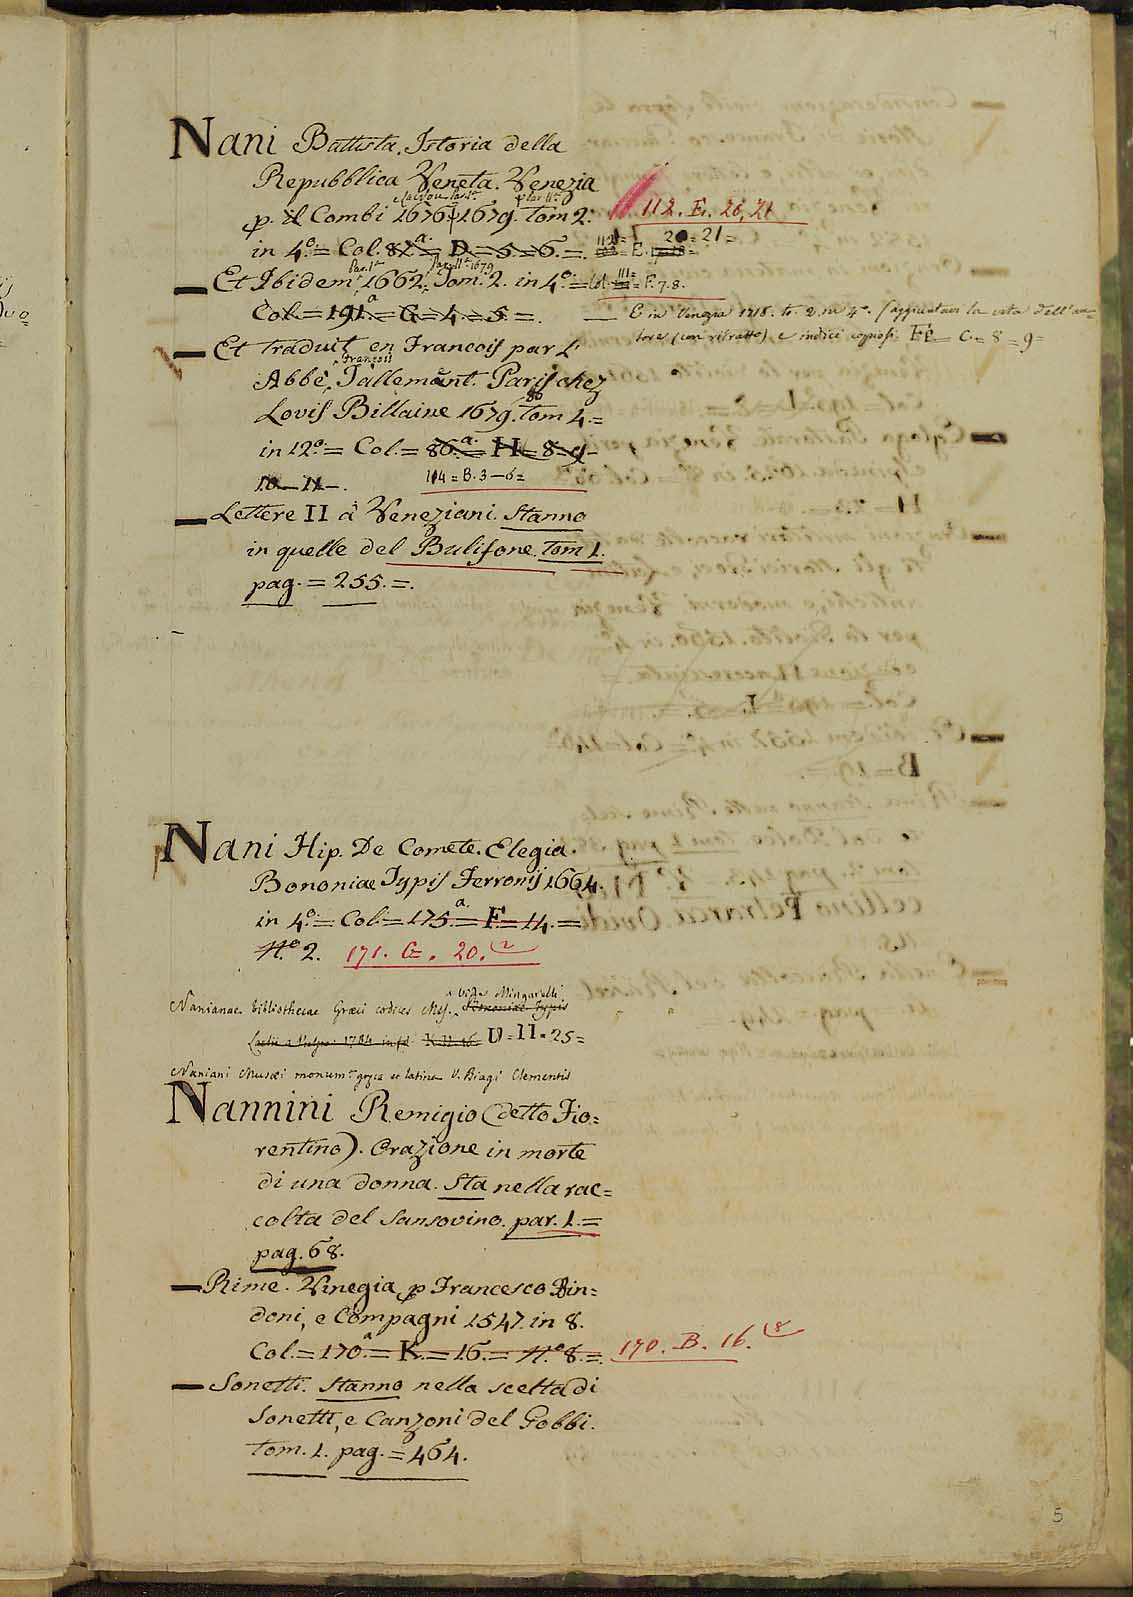 Nani Battista. Istoria della
Repubblica Veneta. Venezia
p. il Combi 1676. 1679. Tom 2. 112. E. 20, 21
in 4.º = Col. 82.ª = D = 5 = 6 = . 112 = E. 20 = 21 =
Par. I.ª Par. II.ª 1679
Et Ibidem 1662. Tom. 2. in 4.º = Col. 111 = F. 7.8.
Col. = 191.ª = G = 4. = 5. = .
E in Venezia 1718. to. 2. in 4º. (aggiuntavi la vita dell'au-
tore (con ritratto) e indici copiosi. FF — C = 8 = 9 =
Et traduit en Francois par L'
Abbè François Tallemant. Paris chez
Lovis Billaine 1679. 80 Tom 4. =
in 12.º = Col. = 86.ª = H = 8 = 9 -
10 — 11 — . 114 = B. 3 — 6 =
Lettere II à Veneziani. Stanno
in quelle del Bulifone. tom 1.
pag. = 255. = .
Nani Hip. De Comete. Elegia.
Bononiae Typis Ferronij 1664.
in 4.º = Col. = 175.ª = F = 14. =
N.º 2. 171. G. 20. (2
Nanianae bibliothecae Graeci codices Mss. vide Mingarelli Bononiae Typis
Laelii a Vulpe 1784 in fol. U = II = 25 =
Naniani Musei monum.ta graeca et latina V. Biagi Clementis
Nannini Remigio (detto Fio=
rentino). Orazione in morte
di una donna. Sta nella rac=
colta del Sansovino. par. 1. =
pag. 68.
Rime. Vinegia p Francesco Bin=
doni, e Compagni 1547. in 8.
Col. = 170.ª = K. = 16. = N.º 8. = . 170. B. 16. (8
Sonetti. Stanno nella scelta di
Sonetti, e Canzoni del Gobbi.
tom. 1. pag. = 464.
5